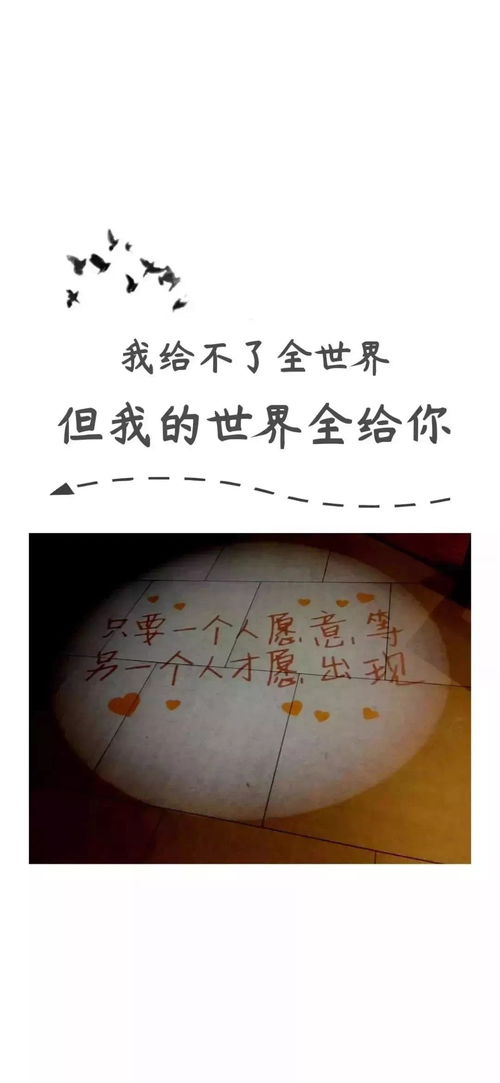 我给不了全世界
但我的世界全给你
只要一个人愿意等
另一个人才愿出现